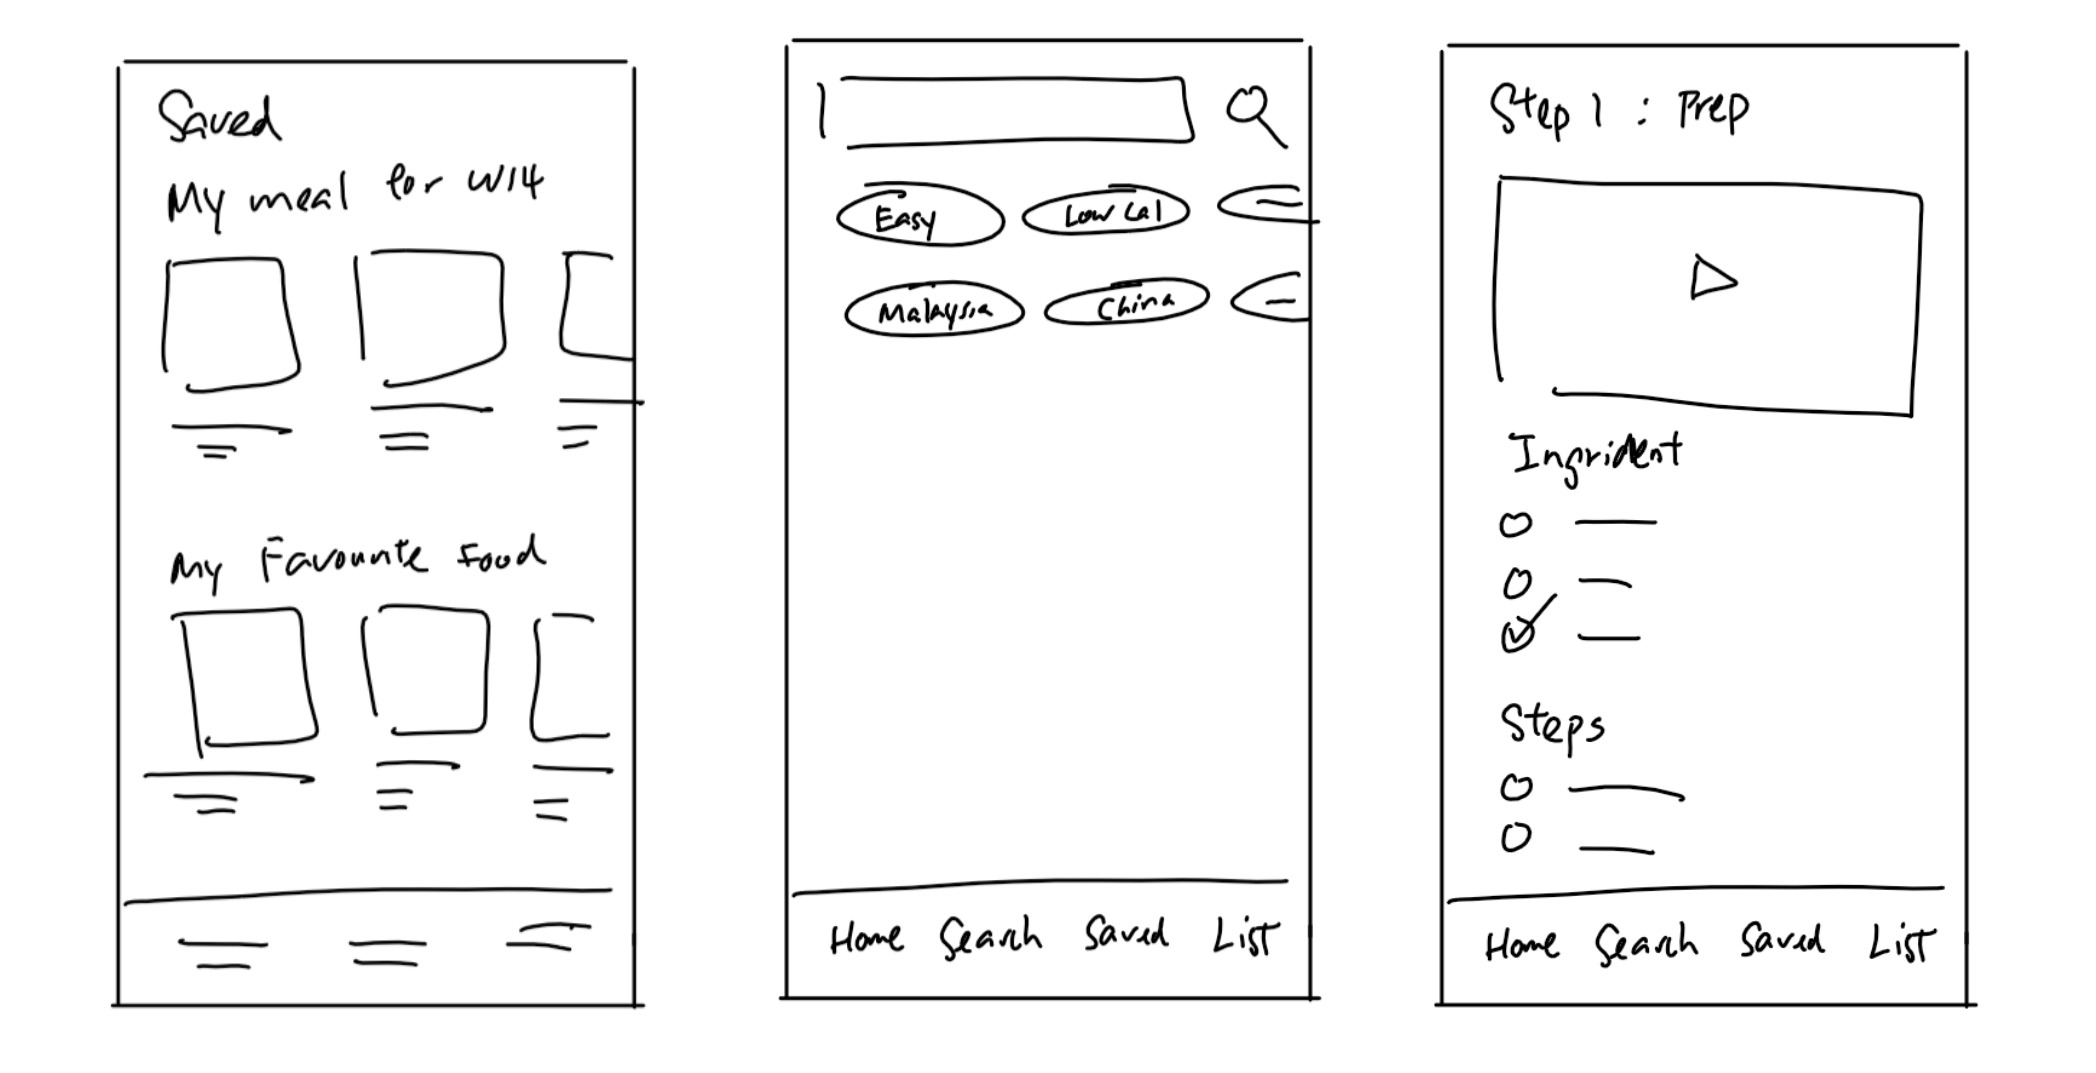 Saved
My meal for W14
My Favourite Food
Easy
Low Cal
Malaysia
China
Home Search Saved List
Step 1 : Prep
Ingrident
Steps
Home Search Saved List